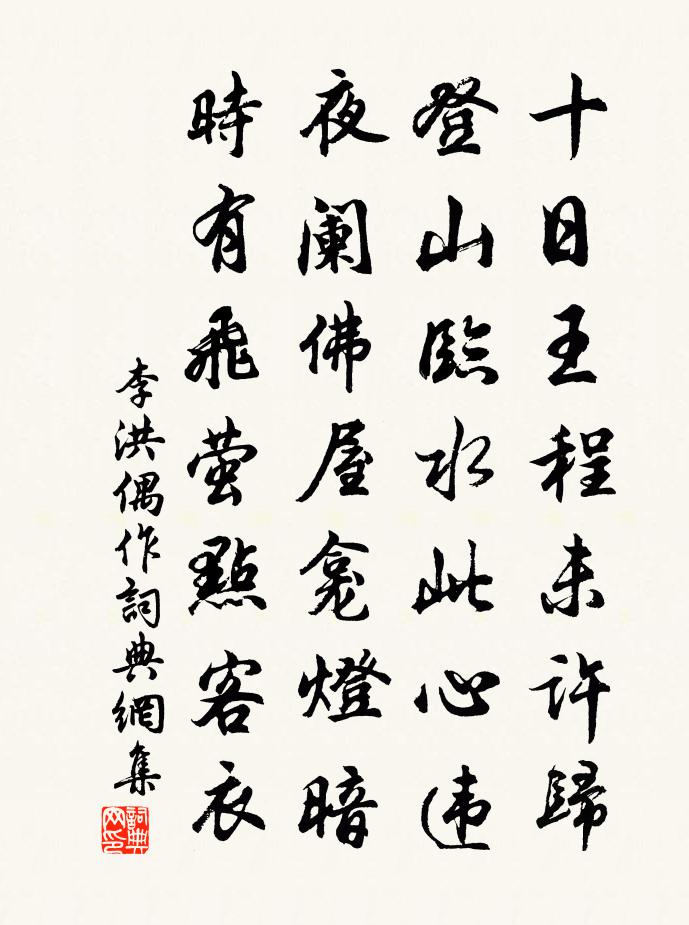 十日王程未許歸
登山臨水此心违
夜阑佛屋龕燈暗
時有飛萤點客衣
李洪偶作詞典網集
詞典网印